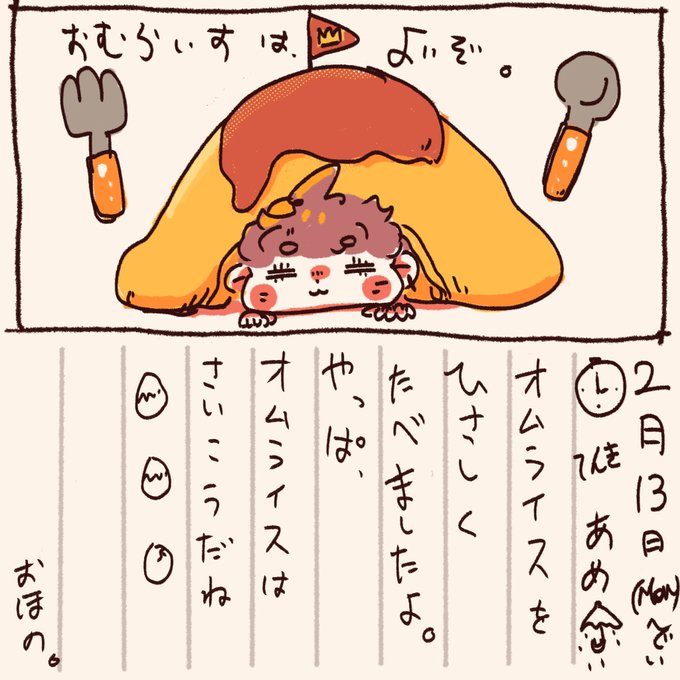 おむらいすは、よいぞ。
2月13日(Mon)
てんき あめ
オムライスを
ひさしく
たべましたよ。
やっぱ、
オムライスは
さいこうだね
おほの。